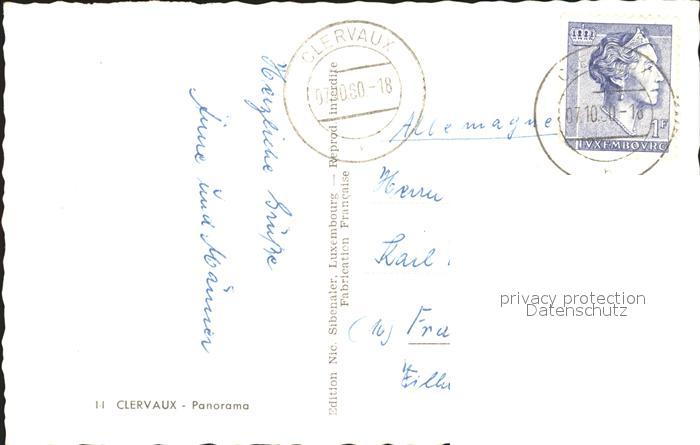 CLERVAUX
07.10.60-18
07.10.60-18
1F
LVXEMBOVRG
Herzliche Grüße
Anne und Männer
Edition Nic. Sibenaler, Luxembourg — Reprod. interdite
Fabrication Française
Allemagne
Herrn
Karl
(16) Fra
Zill
privacy protection
Datenschutz
11 CLERVAUX - Panorama